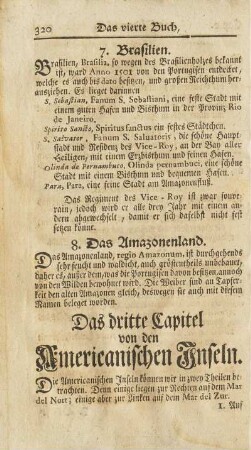 320 Das vierte Buch,
7. Brasilien.
Brasilien, Brasilia, so wegen des Brasilienholzes bekannt
ist, ward Anno 1501 von den Portugisen entdecket,
welche es auch bis dato besitzen, und großen Reichthum her-
ausziehen. Es lieget darinnen
S. Sebastian, Fanum S. Sebastiani, eine feste Stadt mit
einem guten Hafen und Bischum in der Provinz Rio
de Janeiro.
Spirito Sancto, Spiritus sanctus ein festes Städtchen.
S. Salvator, Fanum S. Salvatoris, die schöne Haupt
stadt und Residenz des Vice-Roy, an der Bay aller
Heiligen, mit einem Erzbisthum und seinen Hafen.
Olinda de Pernambuco, Olinda pernambuci, eine schöne
Stadt mit einem Bischum und bequemen Hafen.
Para, Para, eine feine Stadt am Amazonenfluß.
Das Regiment des Vice-Roy ist zwar souve-
rain, jedoch wird er alle drey Jahr mit einem an-
dern abgewechselt, damit er sich daselbst nicht fest
setzen könne.
8. Das Amazonenland.
Das Amazonenland, regio Amazonum, ist durchgehends
sehr feucht und waldicht, auch größtentheils unbebauet,
daher es, außer dem, was die Portugisen davon besitzen, annoch
von den Wilden bewohnt wird. Die Weiber sind an Tapfer-
keit den alten Amazonen gleich, deswegen sie auch mit diesem
Namen beleget worden.
Das dritte Capitel
von den
Americanischen Inseln.
Die Americanischen Inseln können wir in zwey Theilen be-
trachten. Denn einige liegen zur Rechten auf dem Mar
del Nort; einige aber zur Linken auf dem Mar del Zur.
1. Auf